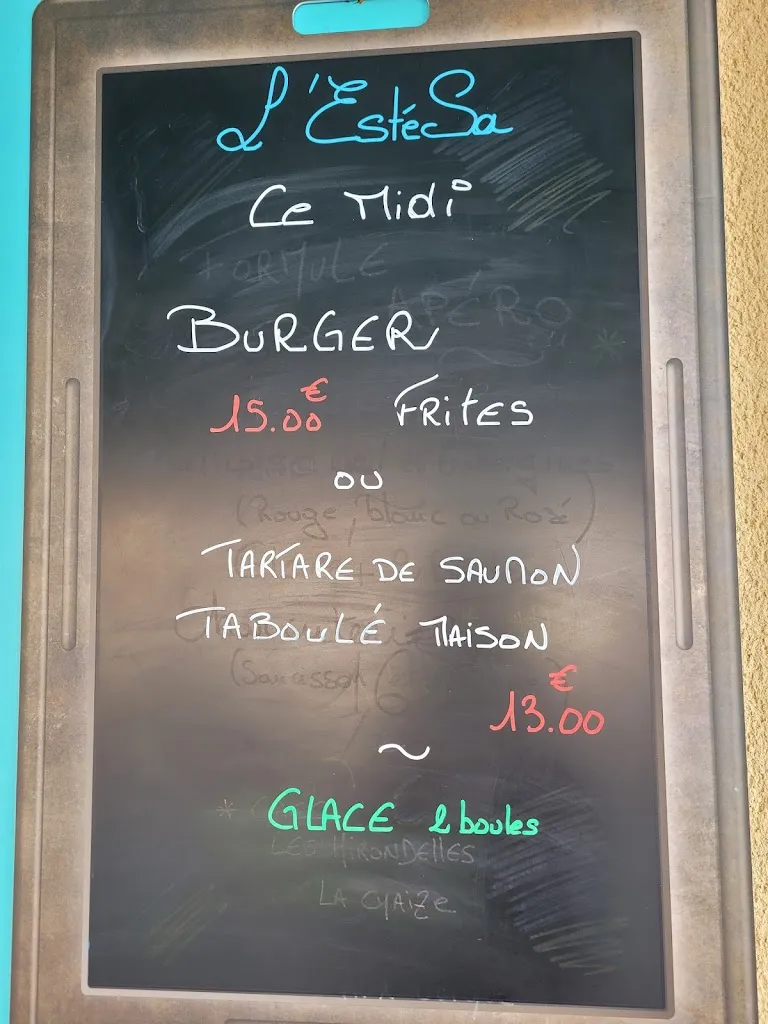 L'EstéSa
Ce Midi
FORMULE
APÉRO
BURGER
15.00€ FRITES
ou
(Rouge, blanc ou Rosé)
TARTARE DE SAUMON
TABOULÉ MAISON
(Saucisson
€
13.00
~
* GLACE 2 boules
LES HIRONDELLES
LA CHAIZE